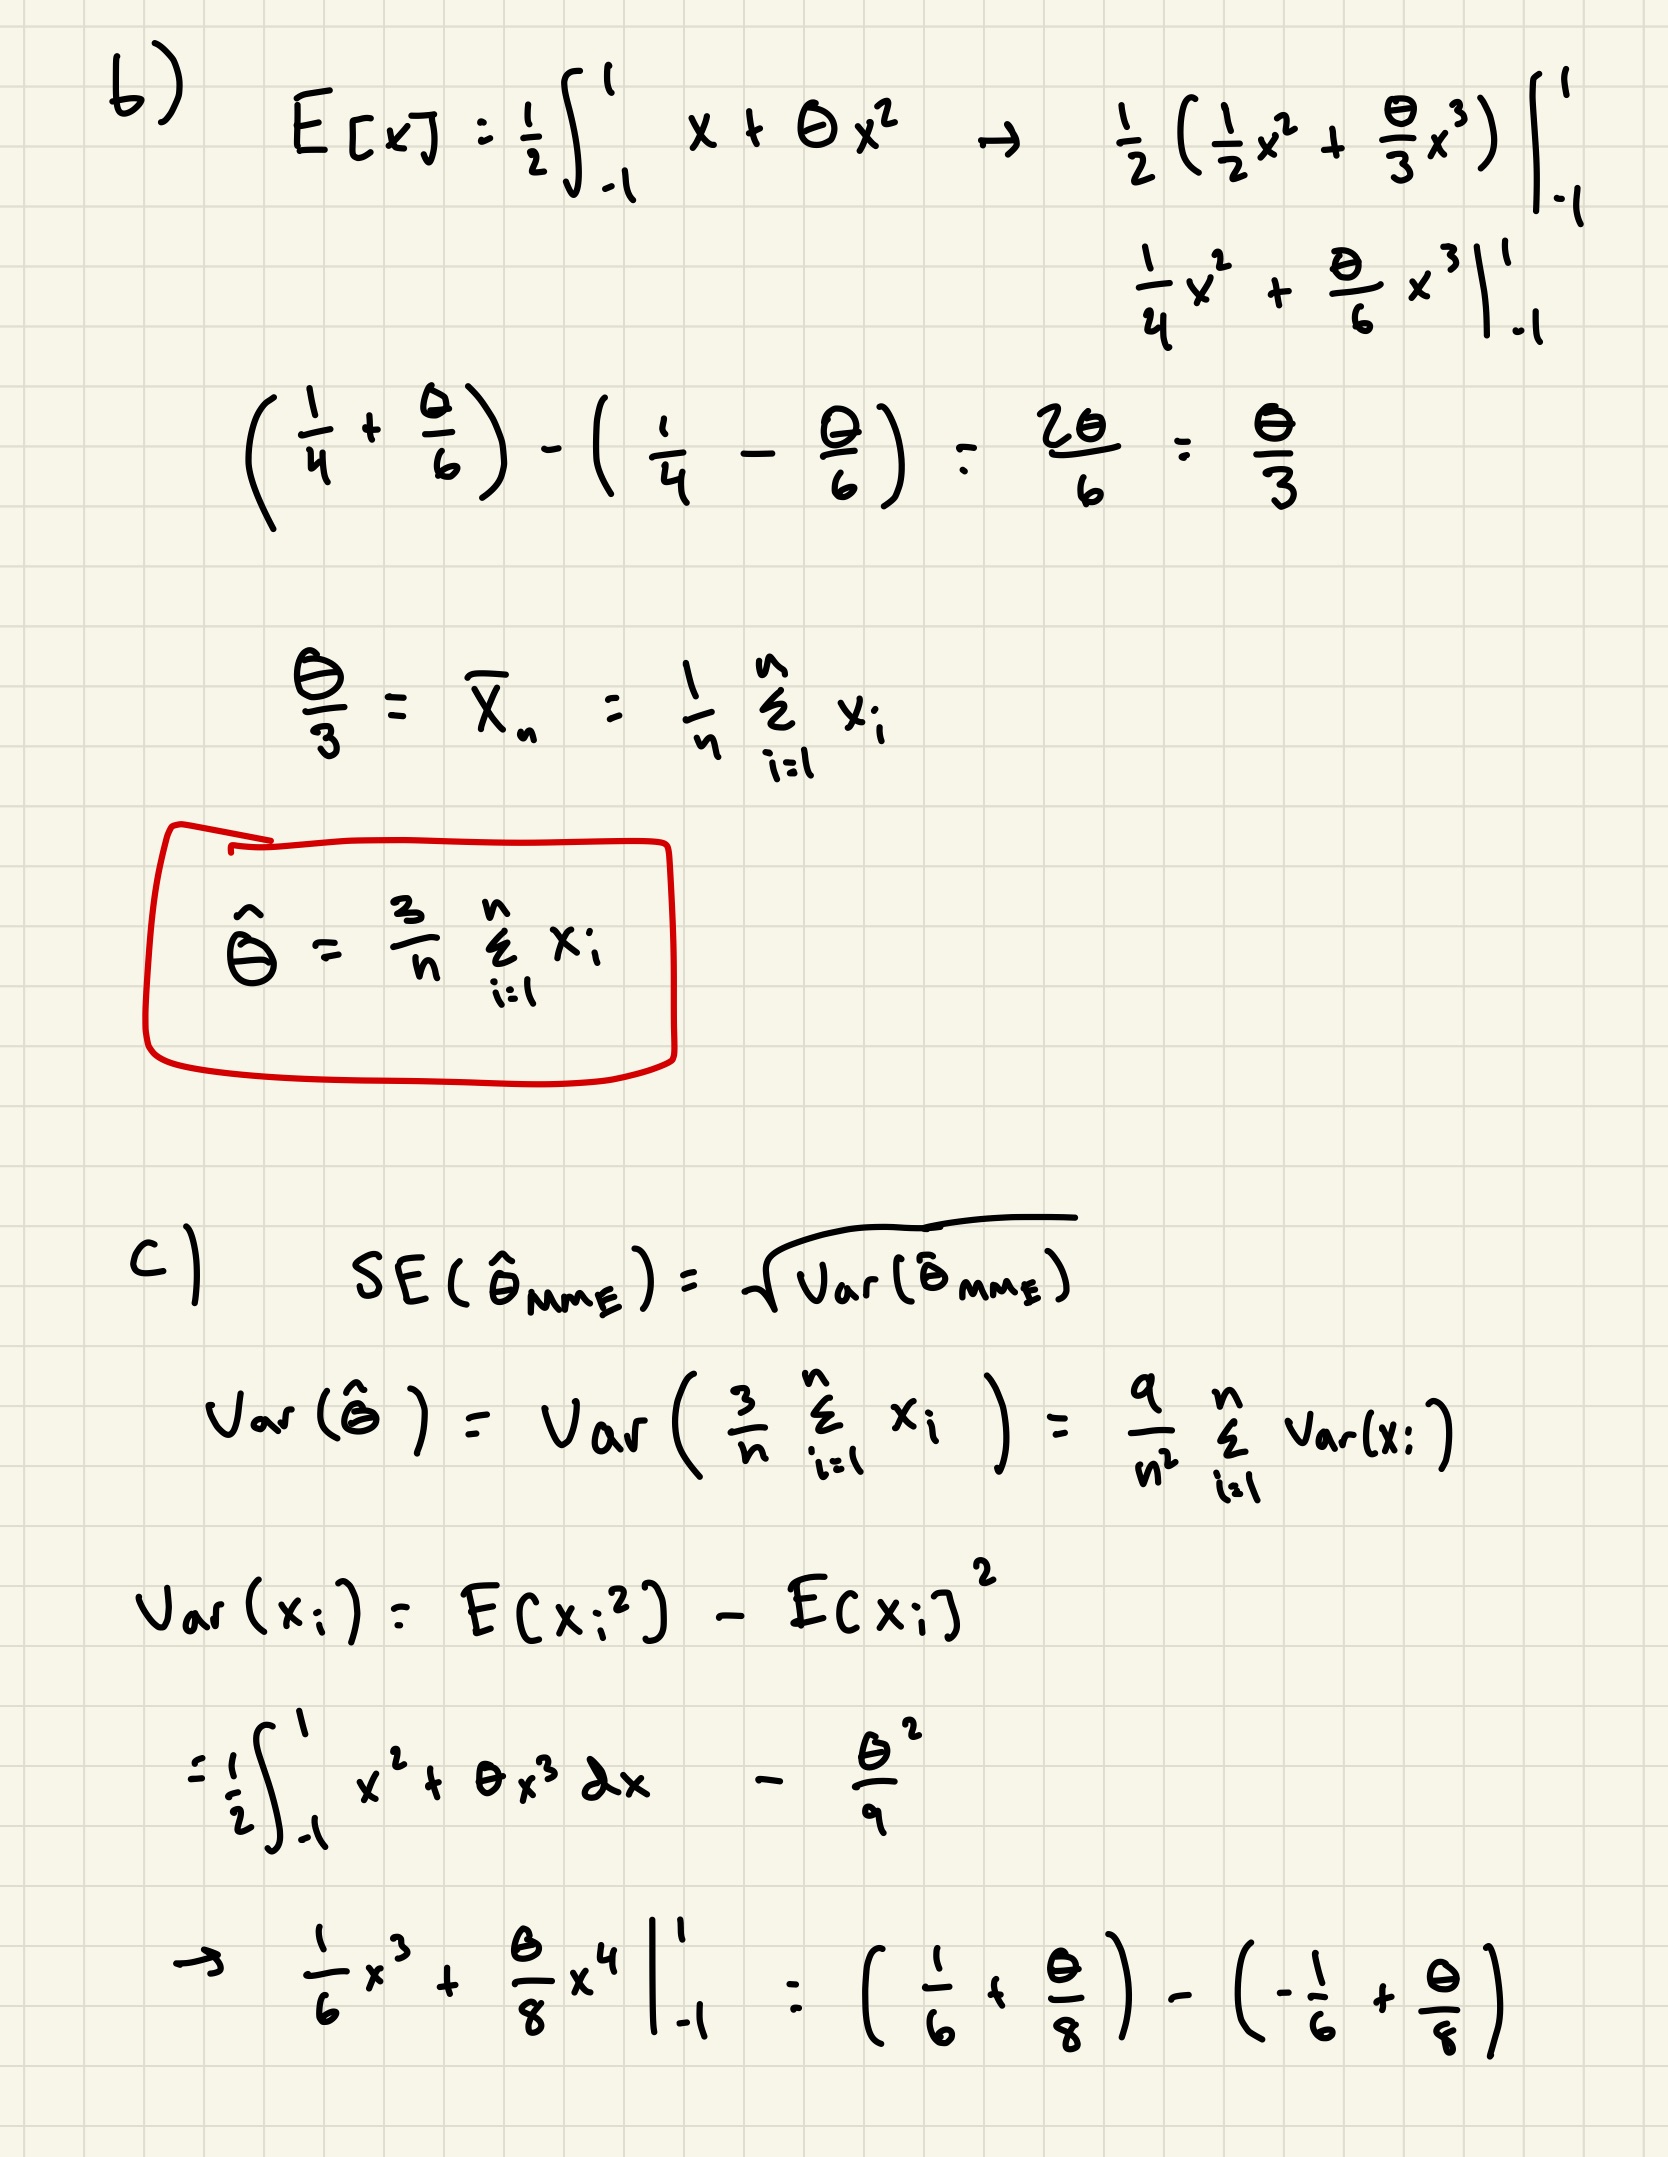 b) E[x] = 1/2 ∫_{-1}^{1} x + θx² → 1/2 (1/2 x² + θ/3 x³) |_{-1}^{1}
1/4 x² + θ/6 x³ |_{-1}^{1}
(1/4 + θ/6) - (1/4 - θ/6) = 2θ/6 = θ/3
θ/3 = X̄_n = 1/n Σ_{i=1}^{n} x_i
θ̂ = 3/n Σ_{i=1}^{n} x_i
c) SE(θ̂_MME) = √Var(θ̂_MME)
Var(θ̂) = Var(3/n Σ_{i=1}^{n} x_i) = 9/n² Σ_{i=1}^{n} Var(x_i)
Var(x_i) = E[x_i²] - E[x_i]²
= 1/2 ∫_{-1}^{1} x² + θx³ dx - θ²/9
→ 1/6 x³ + θ/8 x⁴ |_{-1}^{1} = (1/6 + θ/8) - (-1/6 + θ/8)